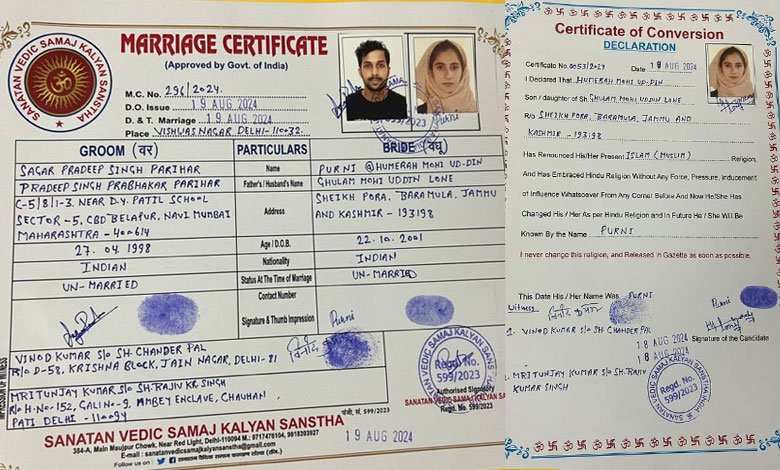 SANATAN VEDIC SAMAJ KALYAN SANSTHA
MARRIAGE CERTIFICATE
(Approved by Govt. of India)
M.C. No. 296/2024.
D.O. Issue 19 AUG 2024
D. & T. Marriage 19 AUG 2024
Place VISHWAS NAGAR, DELHI-110032.
GROOM (वर) PARTICULARS BRIDE (वधू)
SAGAR PRADEEP SINGH PARIHAR Name PURNI @ HUMERAH MOHI UD-DIN
PRADEEP SINGH PRABHAKAR PARIHAR Father's / Husband's Name GHULAM MOHI UDDIN LONE
C-5/8/1-3, NEAR D.Y. PATIL SCHOOL
SECTOR-5, CBD BELAPUR, NAVI MUMBAI
MAHARASHTRA - 400614
Address
SHEIKH PORA, BARAMULA, JAMMU
AND KASHMIR - 193198
27.04.1998 Age / D.O.B. 22.10.2001
INDIAN Nationality INDIAN
UN-MARRIED Status At The Time of Marriage UN-MARRIED
Contact Number
Signature & Thumb Impression Purni
VINOD KUMAR S/o SH. CHANDER PAL
R/o D-58, KRISHNA BLOCK, JAIN NAGAR, DELHI-81
MRITUNJAY KUMAR S/o SH. RAJIV KR SINGH
R/o H-NO-152, GALI NO-9, AMBEY ENCLAVE, CHAUHAN
PATI DELHI - 110094
Regd. No.
599/2023
Authorised Signatory
SANATAN VEDIC SAMAJ KALYAN SANSTHA
Regd. No. 599/2023
SANATAN VEDIC SAMAJ KALYAN SANSTHA
384-A, Main Maujpur Chowk, Near Red Light, Delhi-110094 M.: 9717476104, 9818393927
E-mail : sanatanvedicsamajkalyansanstha@gmail.com
Follow us on :
19 AUG 2024
Certificate of Conversion
DECLARATION
Certificate No. 0053/2023 Date 18 AUG 2024
I Declared That HUMERAH MOHI UD-DIN
Son / daughter of SH. GHULAM MOHI UDDIN LONE
R/o SHEIKH PORA, BARAMULA, JAMMU AND
KASHMIR - 193198
Has Renounced His/Her Present ISLAM (MUSLIM) Religion,
And Has Embraced Hindu Religion Without Any Force, Pressure, Inducement
of Influence Whatsoever From Any Corner Before And Now He/She Has
Changed His / Her As per Hindu Religion and In Future He / She Will Be
Known By the Name PURNI
I never change this religion, and Released in Gazette as soon as possible.
This Date His / Her Name Was PURNI
Witness
Purni
1. VINOD KUMAR S/o SH. CHANDER PAL
18 AUG 2024
Signature of the Candidate
18 AUG 2024
MRITUNJAY KUMAR S/o SH. RAJIV
KUMAR SINGH
Regd. No.
599/2023